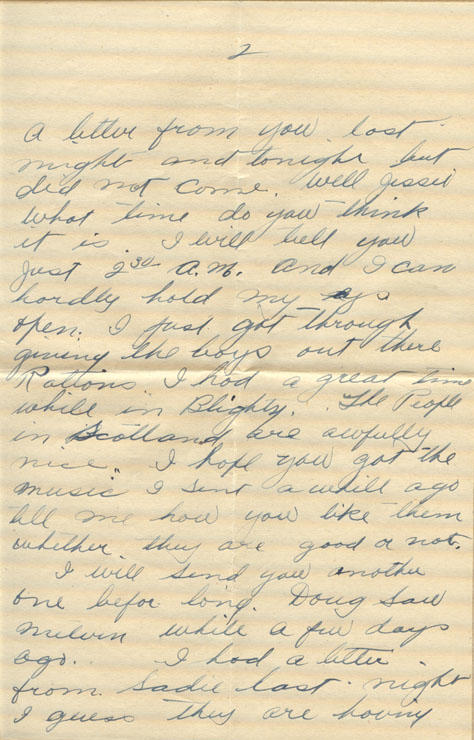 2
A letter from you last
night and tonight but
did not come. Well Jessie
what time do you think
it is. I will tell you
Just 2 30 A.M. And I can
hardly hold my eys
open. I just got through
giving the boys out there
Rations I had a great time
while in Blighty. The People
in Scotland are awfully
nice. I hope you got the
music I sent awhile ago
tell me how you like them
whether they are good or not.
I will send you another
one befor long. Doug saw
Melvin while a few days
ago. I had a letter
from Sadie last night
I guess they are having